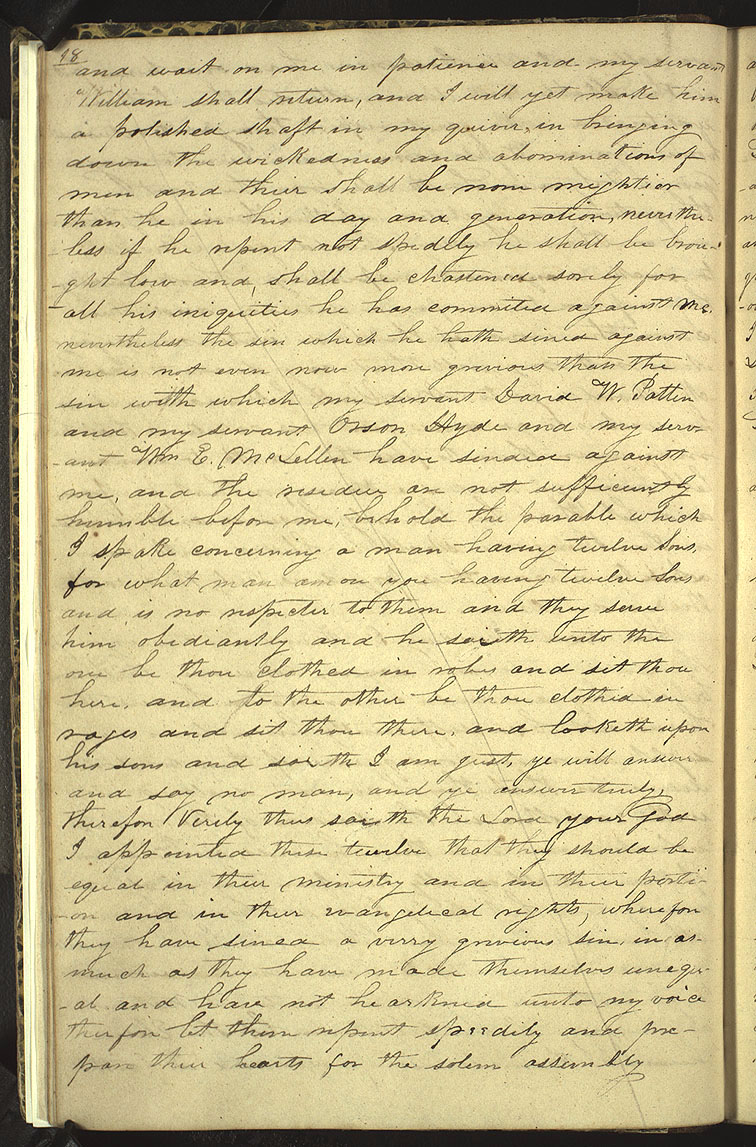 48
and wait on me in patience and my servant
William shall return, and I will yet make him
a polished shaft in my quiver, in bringing
down the wickedness and abominations of
men and their shall be none mightier
than he in his day and generation, neverthe-
less if he repent not spedily he shall be brou-
-ght low and shall be chastened sorely for
all his iniquities he has commited against me.
nevertheless the sin which he hath sined against
me is not even now more grevious than the
sin with which my servant David W. Patten
and my servant Orson Hyde and my serv-
-ant Wm E. McLellen have sinded against
me, and the residue are not sufficiently
humble before me, behold the parable which
I spake concerning a man having twelve Sons,
for what man amon you having twelve Sons
and is no respecter to them and they serve
him obediantly and he saith unto the
one be thou clothed in robes and sit thou
here, and to the other be thou clothed in
rages and sit thou there, and looketh upon
his sons and saith I am just, ye will answer
and say no man, and ye answer truly,
therefore Verely thus saith the Lord your God
I appointed these twelve that they should be
equal in their ministry and in their porti-
-on and in their evangelical rights, wherefore
they have sined a verry grevious sin, in as-
much as they have made themselves unequ-
-al and have not hearkned unto my voice
therfore let them repent speedily and pre-
pare their hearts for the solem assembly